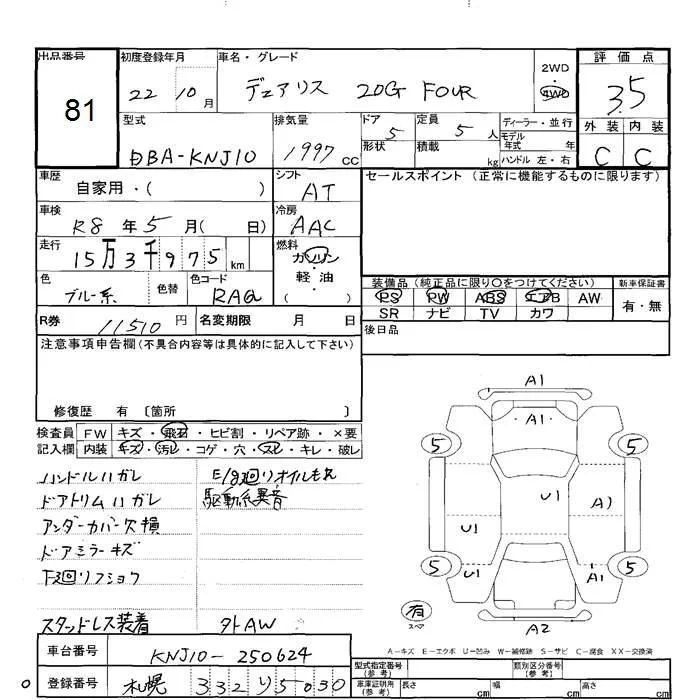 出品番号
81
初度登録年月
22 10月
車名・グレード
デュアリス 20G FOUR
2WD
4WD
評価点
3.5
外装 内装
C C
型式
DBA-KNJ10
排気量
1997 cc
ドア 5
形状
定員 5 人
積載 kg
ディーラー・並行
モデル年式 年
ハンドル 左・右
車歴
自家用・( )
シフト
AT
セールスポイント (正常に機能するものに限ります)
車検
R8 年 5 月( 日)
冷房
AAC
走行
15万3千975 km
燃料
ガソリン
軽油
( )
色
ブルー系
色替
色コード
RAQ
装備品 (純正品に限り○をつけてください)
新車保証書
PS PW ABS エアB AW
有・無
SR ナビ TV カワ
R券 11510 円
名変期限 月 日
後日品
注意事項申告欄 (不具合内容等は具体的に記入して下さい)
修復歴 有 〔箇所 〕
検査員
記入欄
FW キズ・飛石・ヒビ割・リペア跡・×要
内装 キズ・汚レ・コゲ・穴・スレ・キレ・破レ
ハンドルハガレ
E/g廻りオイルもれ
ドアトリムハガレ
駆動系異音
アンダーカバー欠損
ドアミラーキズ
下廻リフショク
スタッドレス装着
外AW
A1
A1
5 5
U1 A1
U1
U1 A1
5 5
有
スペア
A2
A-キズ E-エクボ U-凹み W-補修跡 S-サビ C-腐食 XX-交換済
車台番号
KNJ10-250624
型式指定番号
(参考)
類別区分番号
(参考)
0
登録番号
札幌 332 り 5030
車庫証明用
(参考)
長さ cm 幅 cm 高さ cm